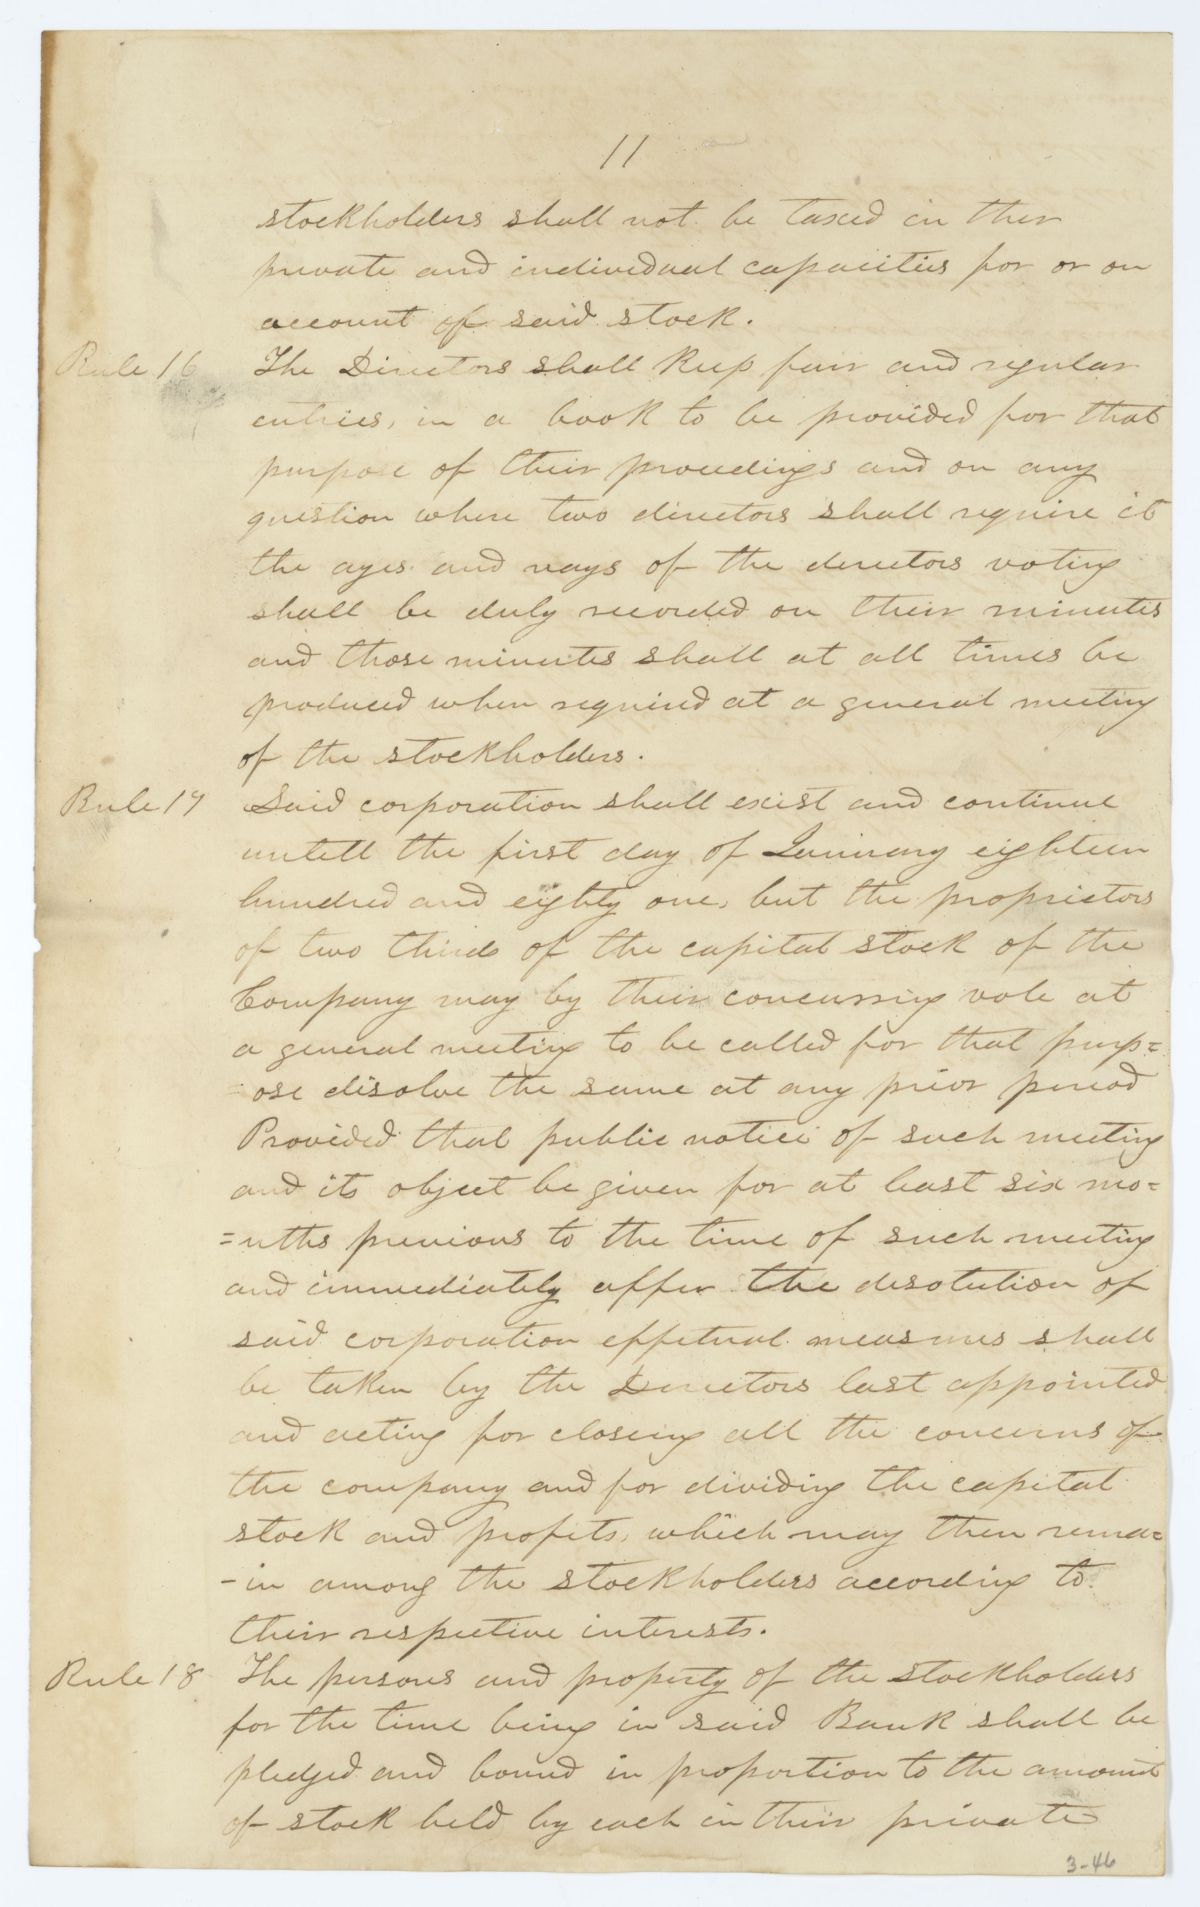 11
stockholders shall not be taxed in ther
private and individual capacities for or on
account of said stock.
Rule 16 The Directors shall keep fair and regular
entries, in a book to be provided for that
purpose of their proceedings and on any
question where two directors shall require it
the ayes and nays of the directors voting
shall be duly recorded on their minutes
and those minutes shall at all times be
produced when required at a general meeting
of the stockholders.
Rule 17 Said corporation shall exist and continue
untell the first day of January eighteen
hundred and eighty one, but the proprietors
of two thirds of the capital stock of the
Company may by their concurring vote at
a general meeting to be called for that purp=
ose disolve the same at any prior period
Provided that public notice of such meeting
and its object be given for at least six mo=
=nths previous to the time of such meeting
and immediately after the desolution of
said corporation effetual measures shall
be taken by the Directors last appointed
and acting for closeing all the concerns of
the company and for dividing the capital
stock and profits, which may then rema=
-in among the stockholders according to
their respective interests.
Rule 18 The persons and property of the stockholders
for the time being in said Bank shall be
pledged and bound in proportion to the amount
of stock held by each in their private
3-46